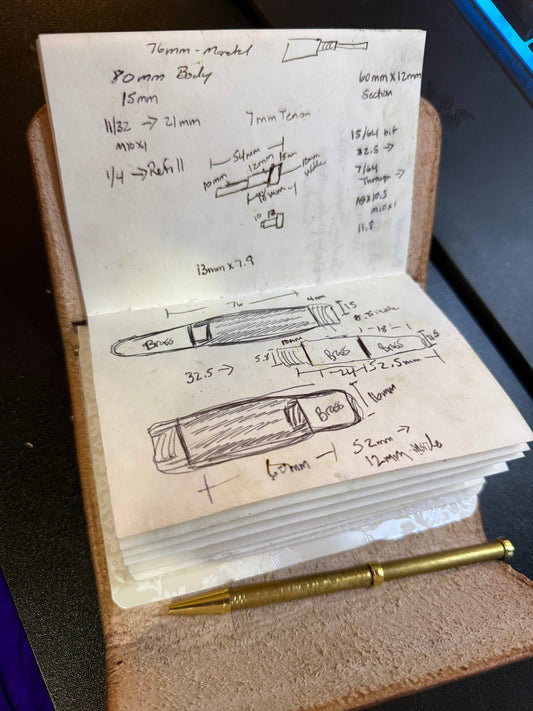 76mm - Model
80mm Body
15mm
11/32 → 21mm
M10x1
1/4 → Refill
7mm Tenon
54mm
12mm
10mm
18mm
10 18
13mm x 7.9
60mm x 12mm
Section
15/64 bit
x 2.5 →
7/64
Through →
10 x 10.5
M10x1
11.8
76
4mm
Brass
18
10mm
5.8
Brass
Brass
32.5 →
24
52.5mm
Brass
16mm
60mm
52mm →
12mm inside